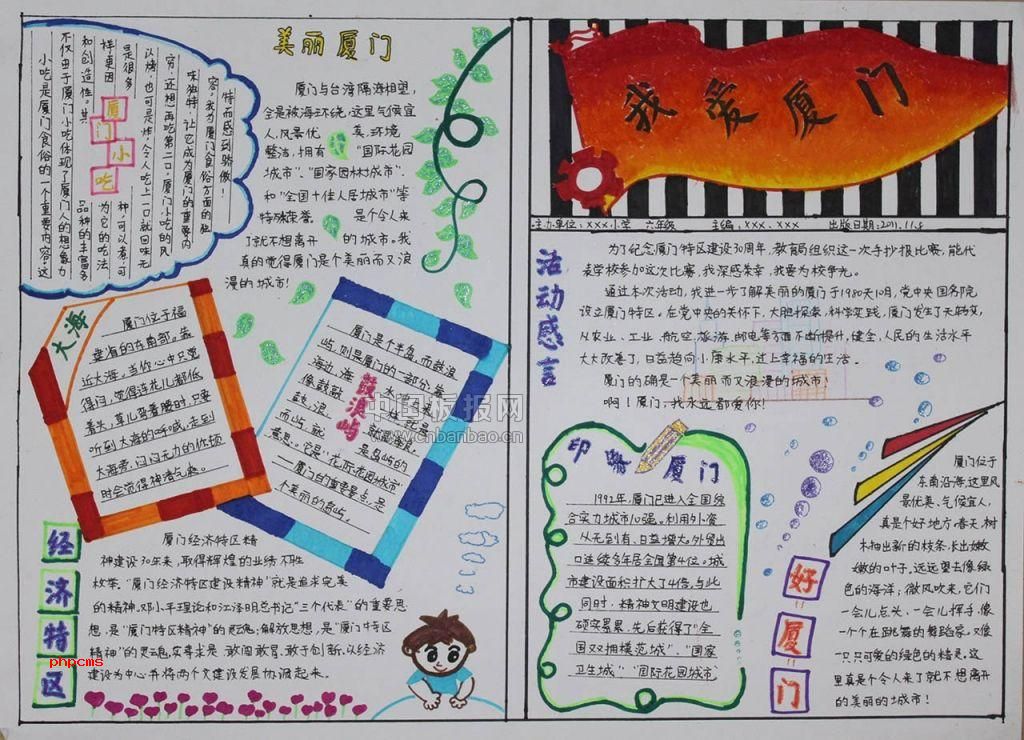 我爱厦门
主办单位：×××小学 六年级 主编：×××、××× 出版日期：2011.11.5
活动感言
为了纪念厦门特区建设30周年，教育局组织这一次手抄报比赛，能代
表学校参加这次比赛，我深感荣幸，我要为校争光。
通过本次活动，我进一步了解美丽的厦门于1980天10月，党中央国务院
设立厦门特区。在党中央的关怀下，大胆探索，科学实践，厦门发生了天翻
从农业、工业、航空、旅游、邮电等方面不断提升，健全，人民的生活水平
大大改善了，日益趋向小康水平，过上幸福的生活。
厦门的确是一个美丽而又浪漫的城市！
啊！厦门，我永远都爱你！
美丽厦门
厦门与台湾隔海相望，
全是被海环绕，这里气候宜
人，风景优美，环境
整洁，拥有“国际花园
城市”、“国家园林城市”、
和“全国十佳人居城市”等
特殊荣誉。是个令人来
了就不想离开的城市。我
真的觉得厦门是个美丽而又浪
漫的城市！
厦门小吃
小吃是厦门食俗的一个重要内容。这
不仅由于厦门小吃体现了厦门人的想象力
和创造性。其品种的丰富多
样更因为它的吃法
是很多种，可以煮，可
以烤，也可是炸，令人吃上一口就回味无
穷，还想再吃第二口。厦门小吃的风
味独特，让它成为厦门的重要内
容。我为厦门食俗方面的独
特而感到骄傲！
大海
厦门位于福
建省的东南部。靠
近大海。当你心中只觉
得闷，觉得连花儿都低
着头，草儿弯着腰时，只要
听到大海的呼喊，走到
大海旁，闷闷无力的你顿
时会觉得神清气爽。
鼓浪屿
厦门是个半岛，而鼓浪
屿，则是厦门的一部分，靠
意思。它是“花际花园城市”
——厦门的重要景点，是
个美丽的岛屿。
经济特区
厦门经济特区精
神建设30年来，取得辉煌的业绩不胜
枚举。“厦门经济特区建设精神”就是追求完美
的精神，邓小平理论和江泽明总书记“三个代表”的重要思
想，是“厦门特区精神”的灵魂；解放思想，是“厦门特区
精神”的灵魂，实事求是、敢闯敢冒、敢于创新，以经济
建设为中心并将两个文建设发展协调起来。
印象厦门
1992年，厦门已进入全国综
合实力城市10强。利用外资
从无到有、日益增大。外贸出
口连续多年居全国第4位。城
市建设面积扩大了4倍。与此
同时，精神文明建设也
硕实累累，先后获得了“全
国双拥模范城”、“国家
卫生城”“国际花园城市
好厦门
厦门位于
东南沿海，这里风
景优美、气候宜人，
真是个好地方。春天，树
木抽出新的枝条，长出嫩
嫩的叶子。远远望去像绿
色的海洋；微风吹来，它们
一会儿点头，一会儿挥手，像
一个个在跳舞的舞蹈家。又像
一只只可爱的绿色的精灵。这
里真是个令人来了就不想离开
的美丽的城市！
中国板报网
www.cnbanbao.cn
phpcms